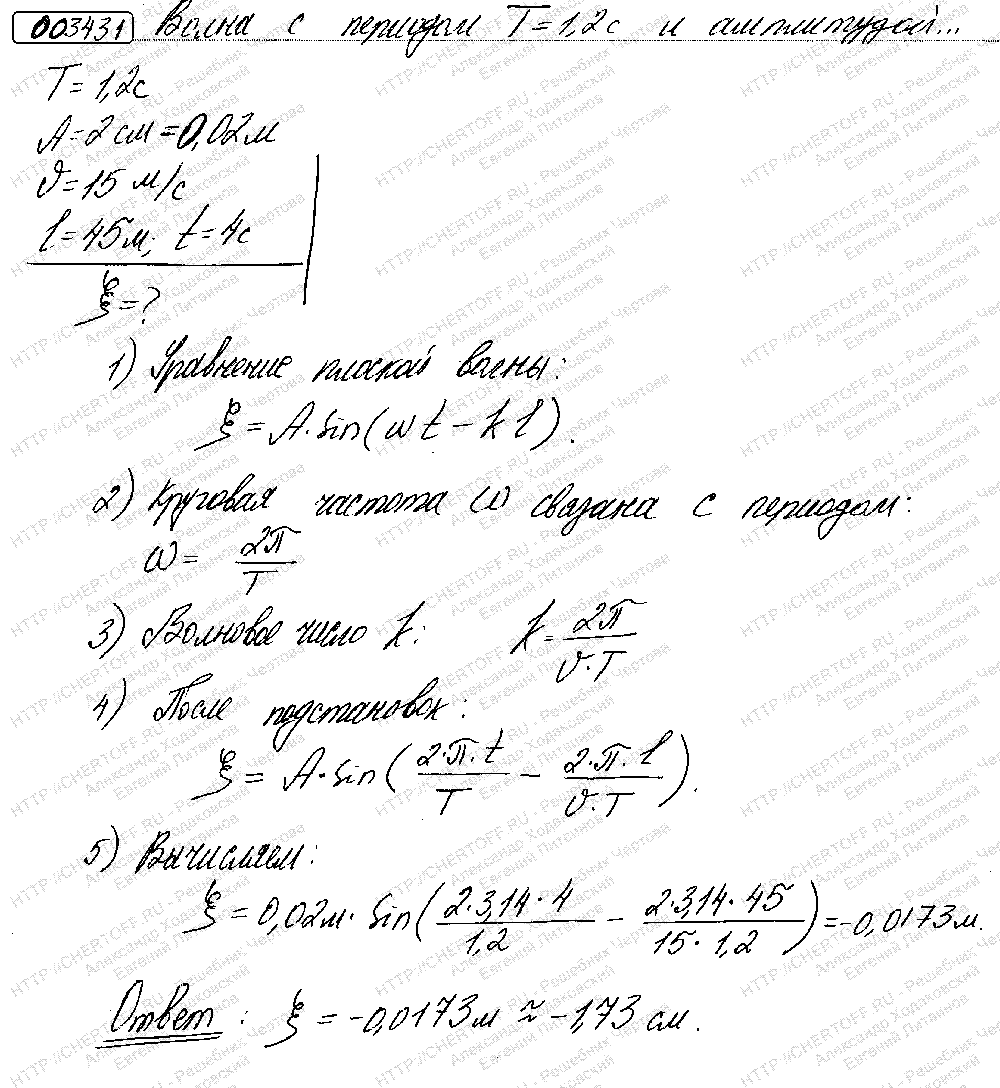 003431 Волна с периодом T = 1,2с и амплитудой...
T = 1,2с
A = 2 см = 0,02 м
υ = 15 м/с
l = 45 м; t = 4с
ξ = ?
1) Уравнение плоской волны:
ξ = A · sin(ωt − kl).
2) Круговая частота ω связана с периодом:
ω = 2π/T
3) Волновое число k: k = 2π/υ·T
4) После подстановок:
ξ = A · sin(2·π·t/T − 2·π·l/υ·T).
5) Вычисляем:
ξ = 0,02м · sin(2·3,14·4/1,2 − 2·3,14·45/15·1,2) = -0,0173 м.
Ответ: ξ = -0,0173 м ≈ -1,73 см.
HTTP://CHERTOFF.RU - Решебник Чертова
Александр Ходаковский
Евгений Литвинов